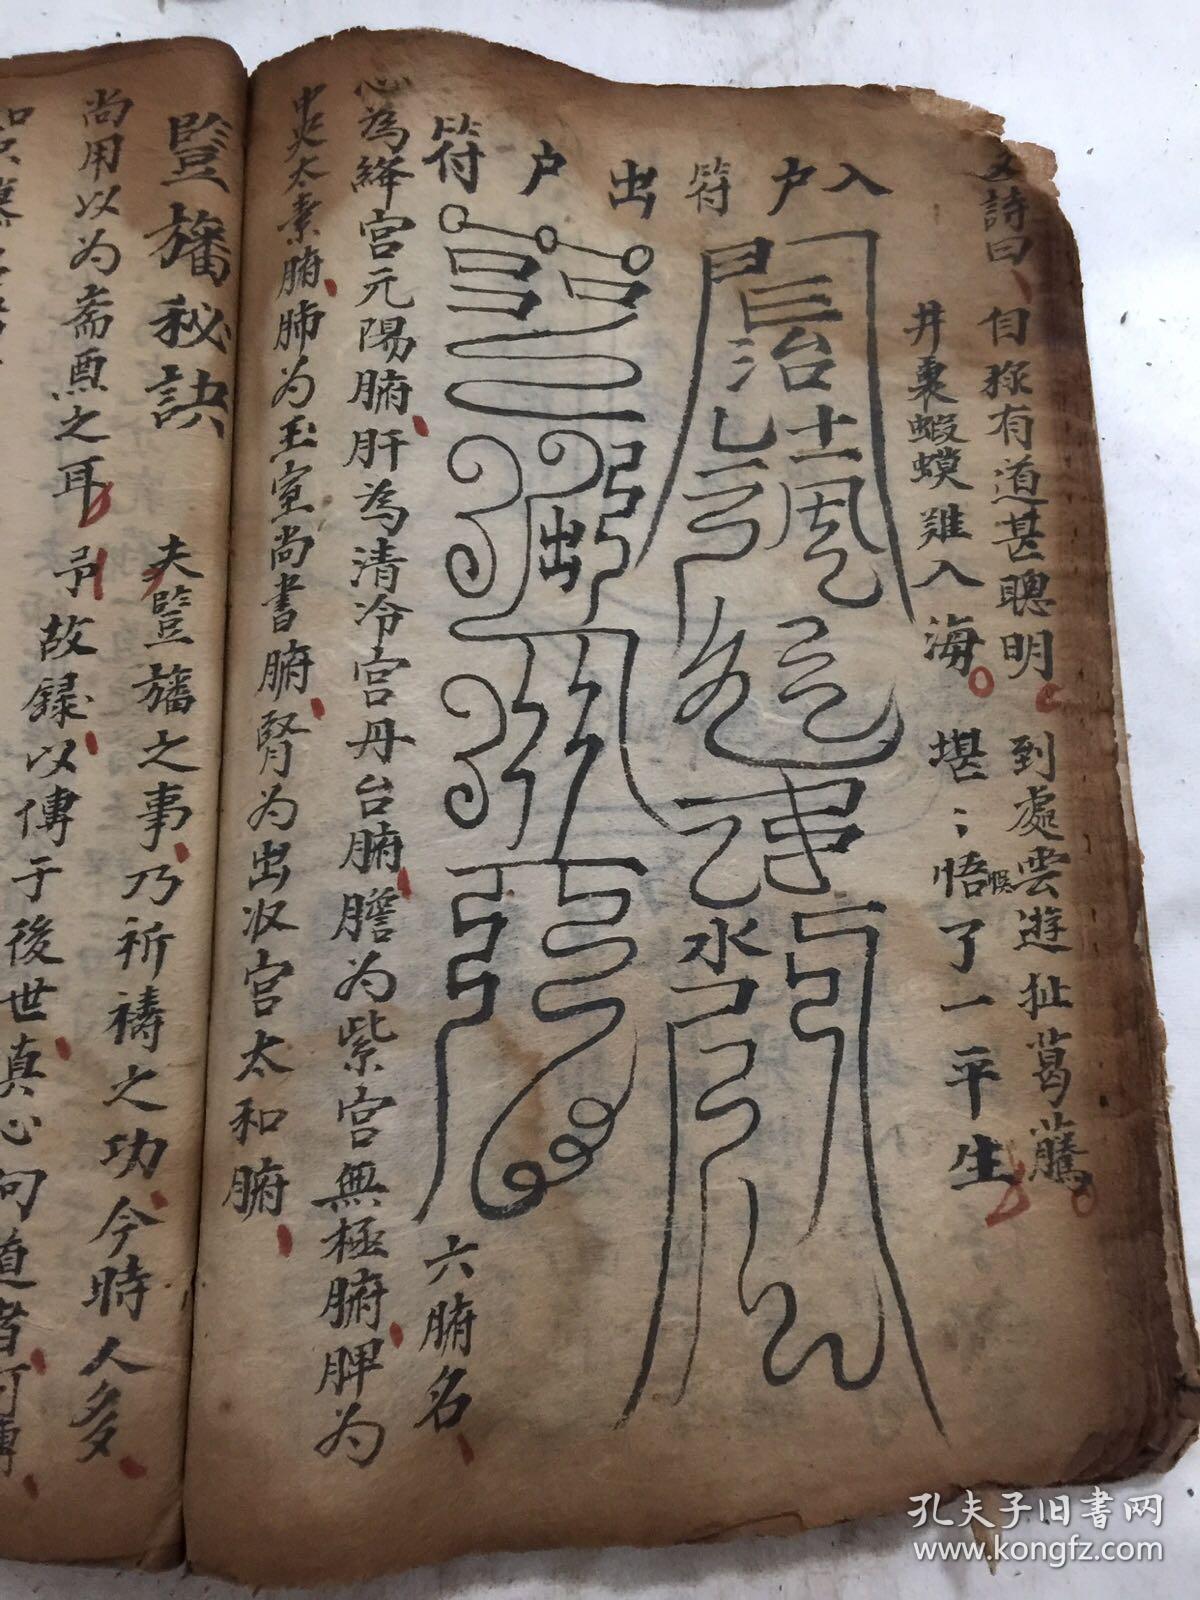 又詩曰、自称有道甚聰明。到處雲遊扯葛藤。
井裏蝦蟆難入海。堪〻悟了一平生
入户符
出户符
六腑名、
心為絳宫元陽腑、肝為清冷宫丹台腑、膽为紫宫無極腑、脾为
中央太素腑、肺为玉室尚書腑、腎为出収宫太和腑、
豎旛秘訣
夫豎旛之事、乃祈禱之功、今時人多、
尚用以为斋醮之耳。予故録、以傳于後世、真心向道者可
www.kongfz.com
孔夫子旧书网